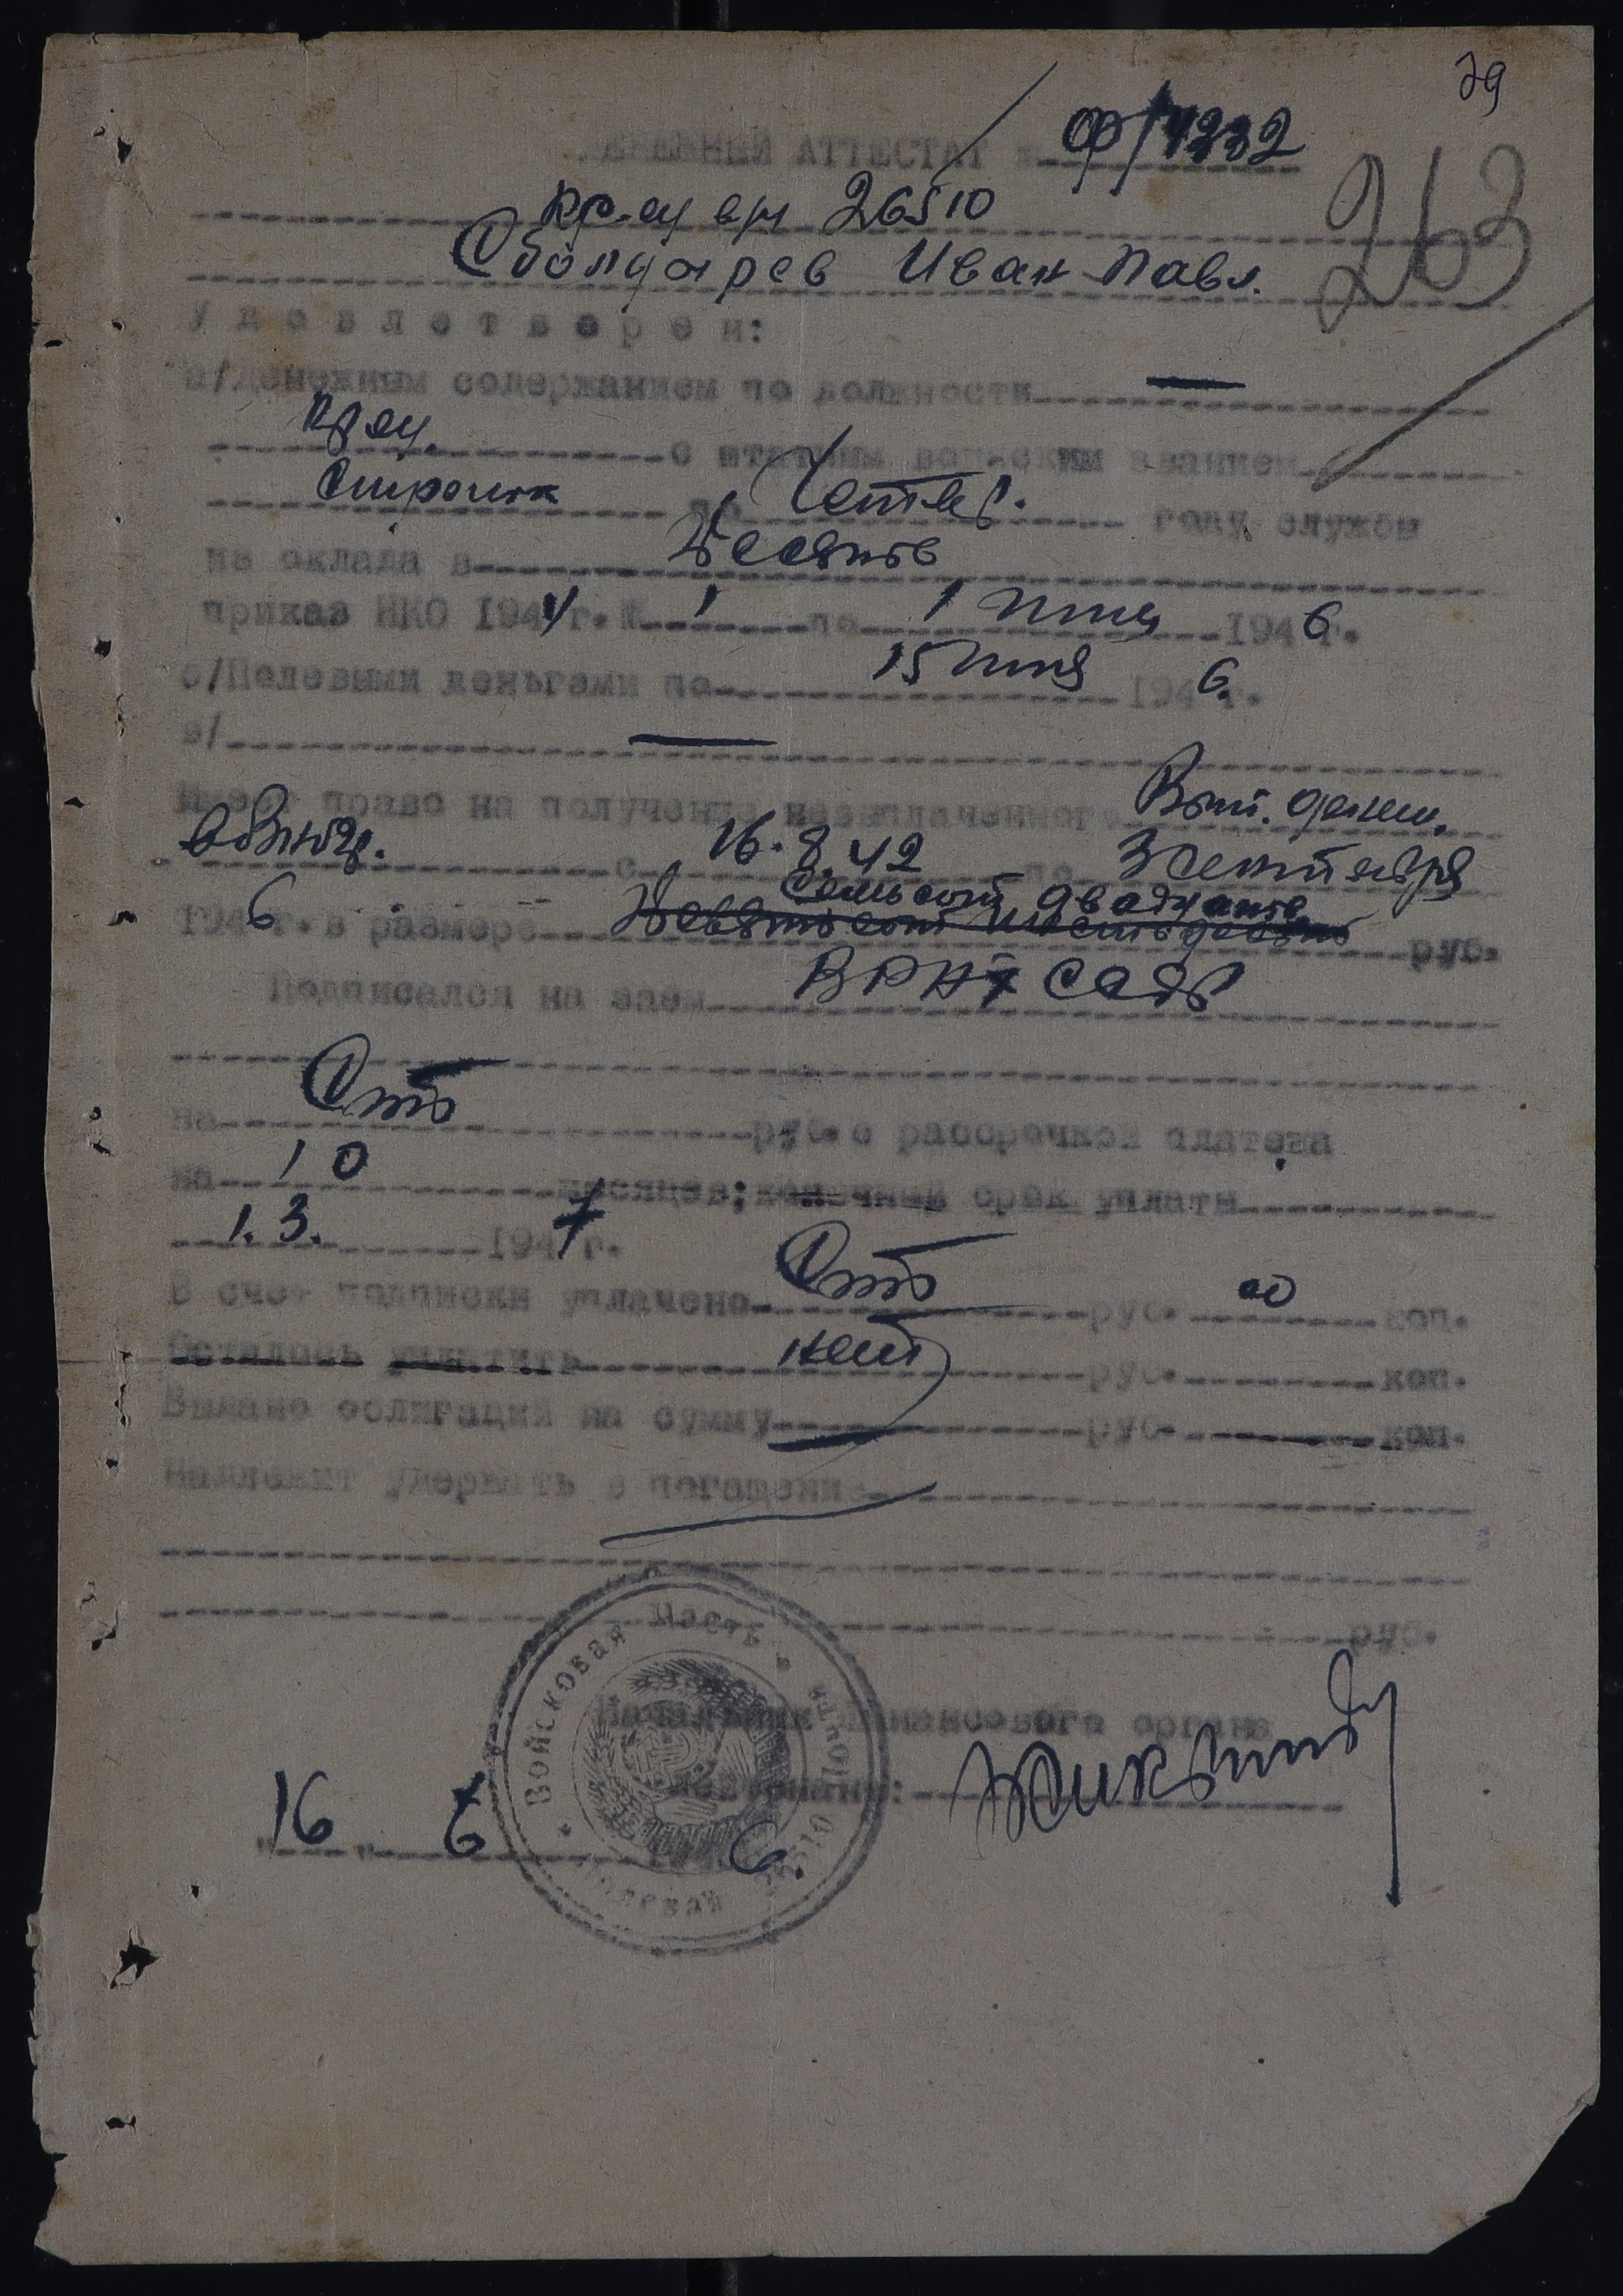 79
ДЕНЕЖНЫЙ АТТЕСТАТ № Ф/1232
263
кр-ец в/ч 26510
Сболдарев Иван Павл.
Удовлетворен:
а/Денежным содержанием по должности
кр-ец. с штатным воинским званием
по Четвер. году службы
из оклада в Десять
приказ НКО 1944 г. № 1 по 1 июля 1946 г.
б/Полевыми деньгами по 15 июня 1946 г.
в/
Имеет право на получение невыплаченного
с 16.8.42 по 3 сентября
1946 г. в размере Семьсот двадцать руб.
Подписался на заем
на Сто руб. с рассрочкой платежа
на 10 месяцев; конечный срок уплаты
1.3. 1947 г.
В счет подписки уплачено Сто руб. 00 коп.
Осталось уплатить нет руб. коп.
Выдано облигаций на сумму руб. коп.
Надлежит удержать в погашение
руб.
Начальник финансового органа
"16" 6 1946.
Войсковая часть * Полевая почта 26510 *